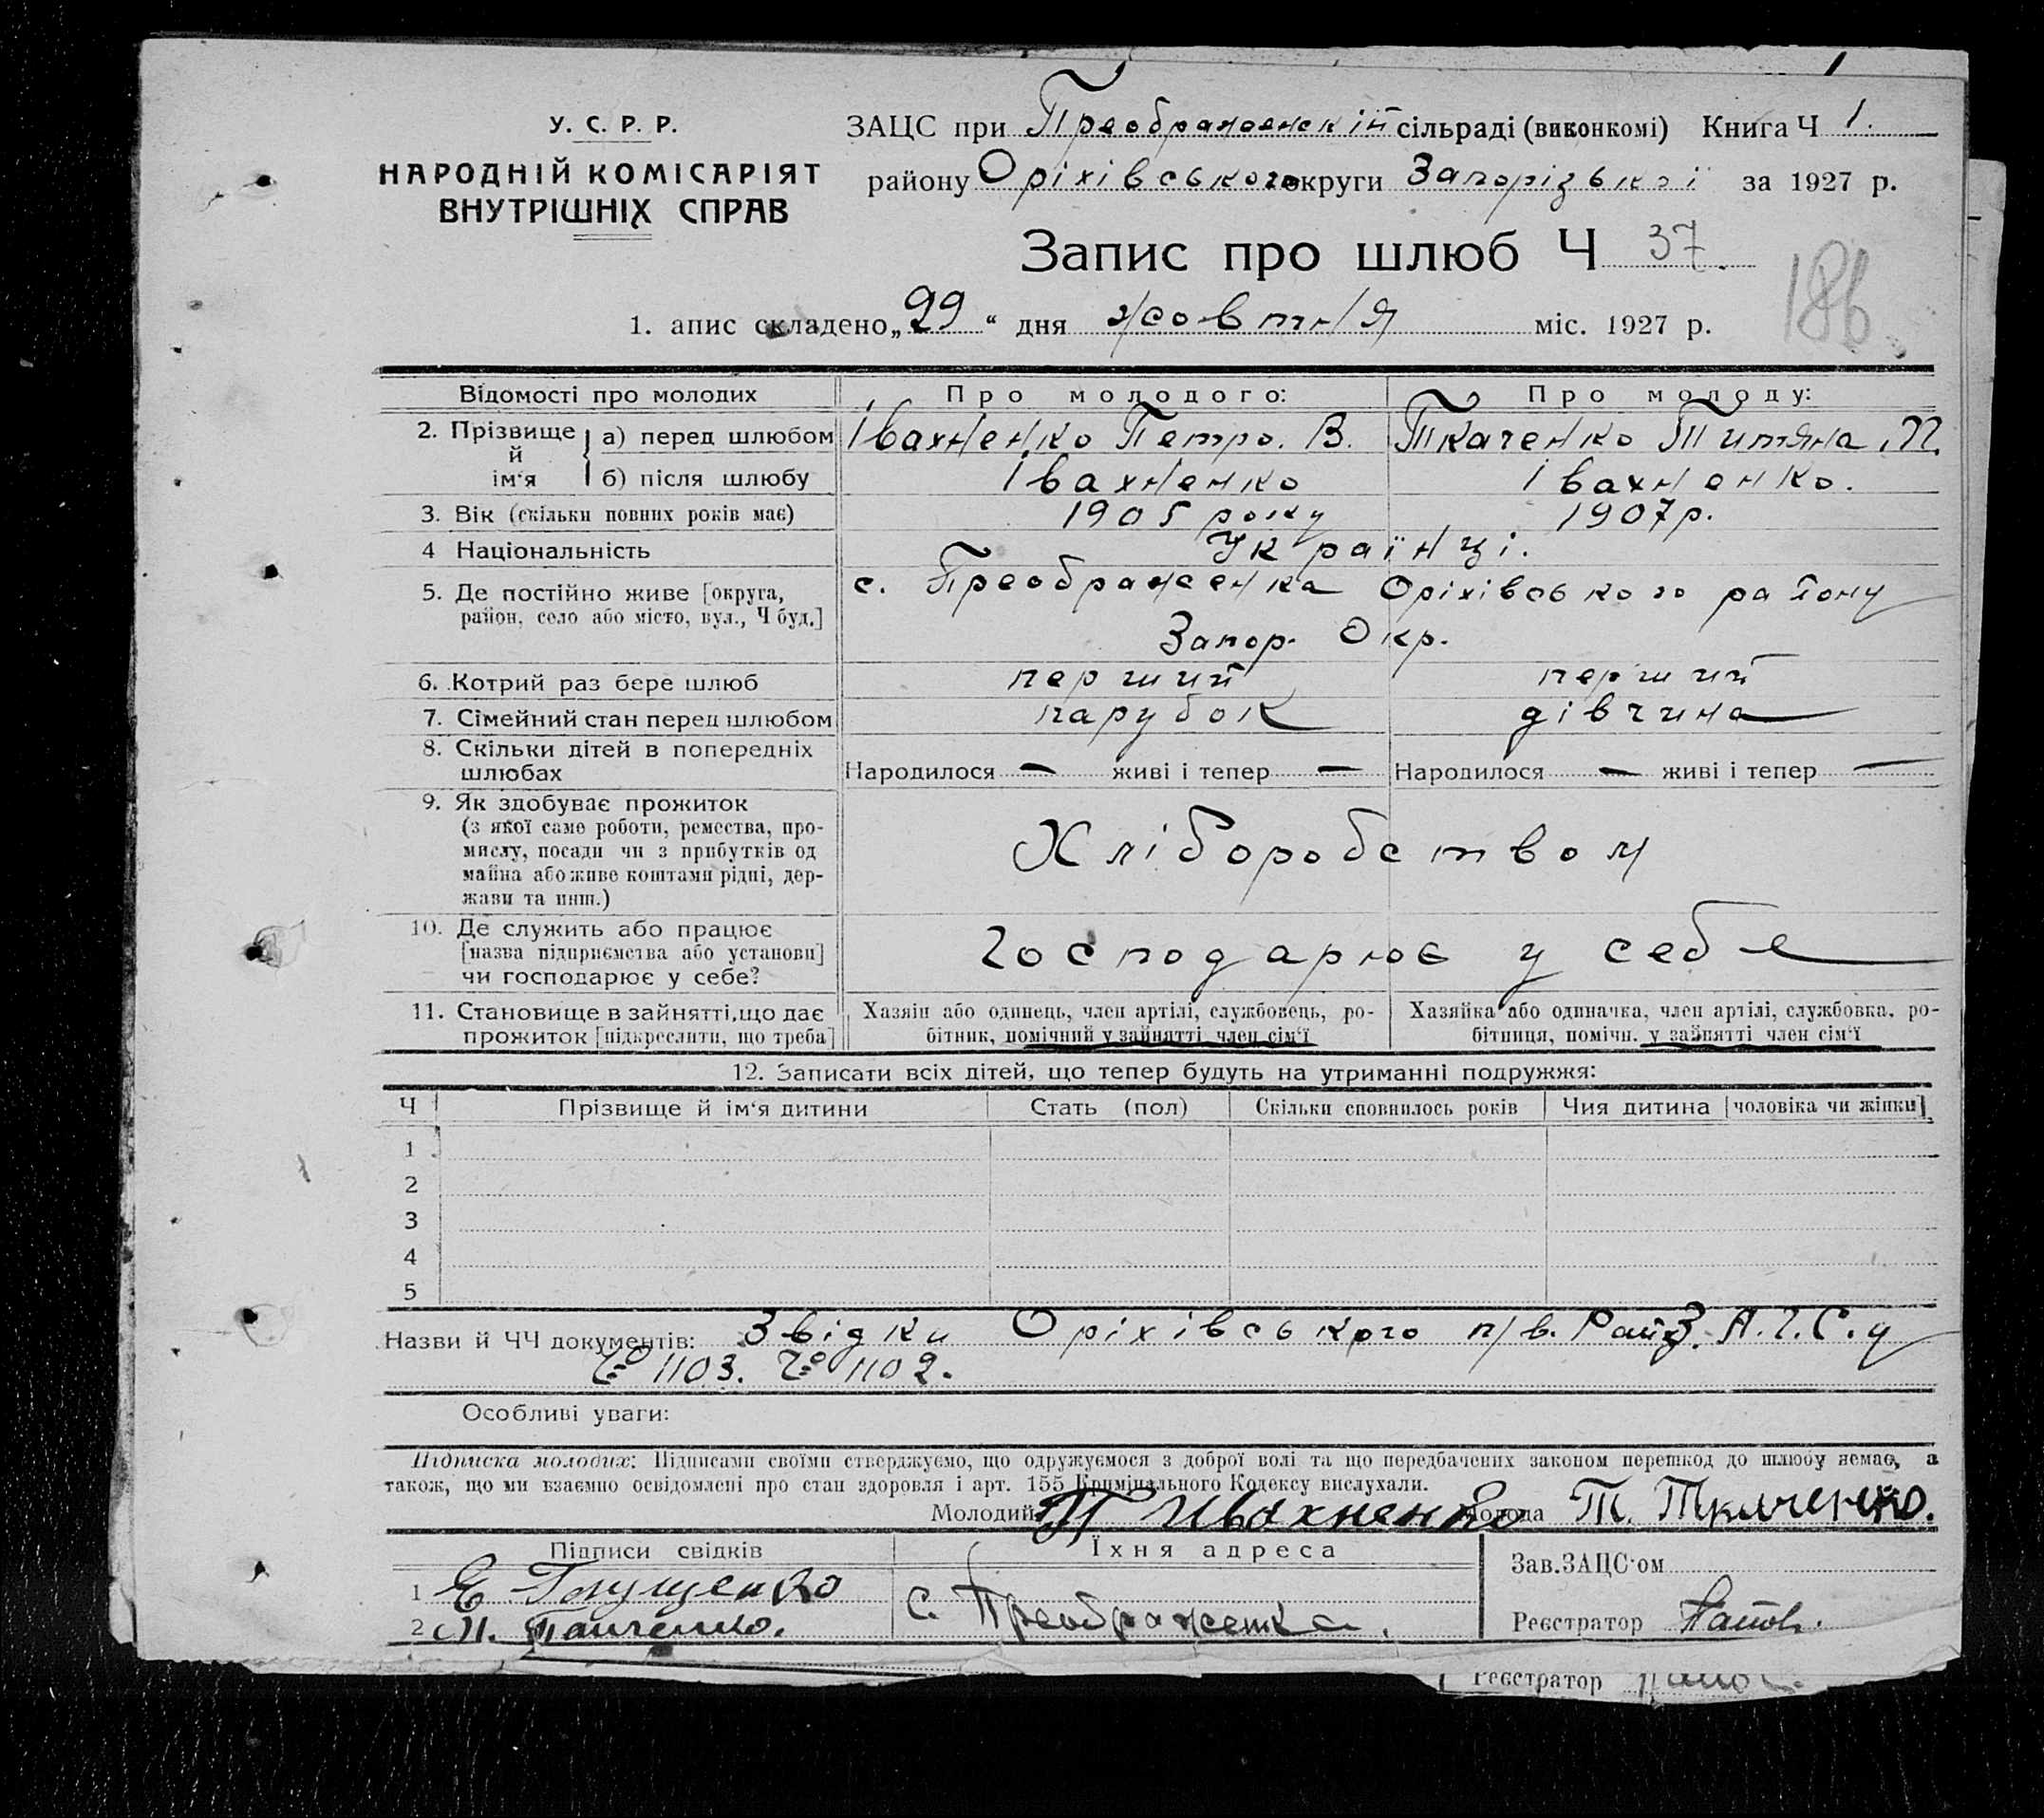 У. С. Р. Р.
НАРОДНІЙ КОМІСАРІЯТ
ВНУТРІШНІХ СПРАВ
ЗАЦС при Преображенскій сільраді (виконкомі) Книга Ч 1.
району Оріхівського округи Запорізької за 1927 р.
Запис про шлюб Ч 37.
186
1. апис складено „29“ дня жовтня міс. 1927 р.
Відомості про молодих Про молодого: Про молоду:
2. Прізвище й ім'я а) перед шлюбом Івахненко Петро. В. Ткаченко Титяна. П.
б) після шлюбу Івахненко Івахненко.
3. Вік (скільки повних років має) 1905 року 1907 р.
4 Національність Українці.
5. Де постійно живе [округа, с. Преображенка Оріхівського району
район, село або місто, вул., Ч буд.] Запор. Окр.
6. Котрий раз бере шлюб перший перший
7. Сімейний стан перед шлюбом парубок дівчина
8. Скільки дітей в попередніх
шлюбах Народилося — живі і тепер — Народилося — живі і тепер —
9. Як здобуває прожиток
(з якої саме роботи, ремества, про-
мислу, посади чи з прибутків од Хліборобством
майна або живе коштами рідні, дер-
жави та инш.)
10. Де служить або працює
[назва підприємства або установи] Господарює у себе
чи господарює у себе?
11. Становище в зайнятті, що дає Хазяїн або одинець, член артілі, службовець, ро- Хазяйка або одиначка, член артілі, службовка, ро-
прожиток [підкреслити, що треба] бітник, помічний у зайнятті член сім'ї бітниця, помічн. у зайнятті член сім'ї
12. Записати всіх дітей, що тепер будуть на утриманні подружжя:
Ч Прізвище й ім'я дитини Стать (пол) Скільки сповнилось років Чия дитина [чоловіка чи жінки]
1
2
3
4
5
Назви й ЧЧ документів: Звідки Оріхівського п/в. Рай З. А. Г. С. у
1103. 1102.
Особливі уваги:
Підписка молодих: Підписами своїми стверджуємо, що одружуємося з доброї волі та що передбачених законом перешкод до шлюбу немає, а
також, що ми взаємно освідомлені про стан здоровля і арт. 155 Кримінального Кодексу вислухали.
Молодий П Ивахненко Молода Т. Ткаченко.
Підписи свідків Їхня адреса Зав. ЗАЦС'ом
1 с. Преображенка.
2 М. Панченко. Реєстратор
Реєстратор